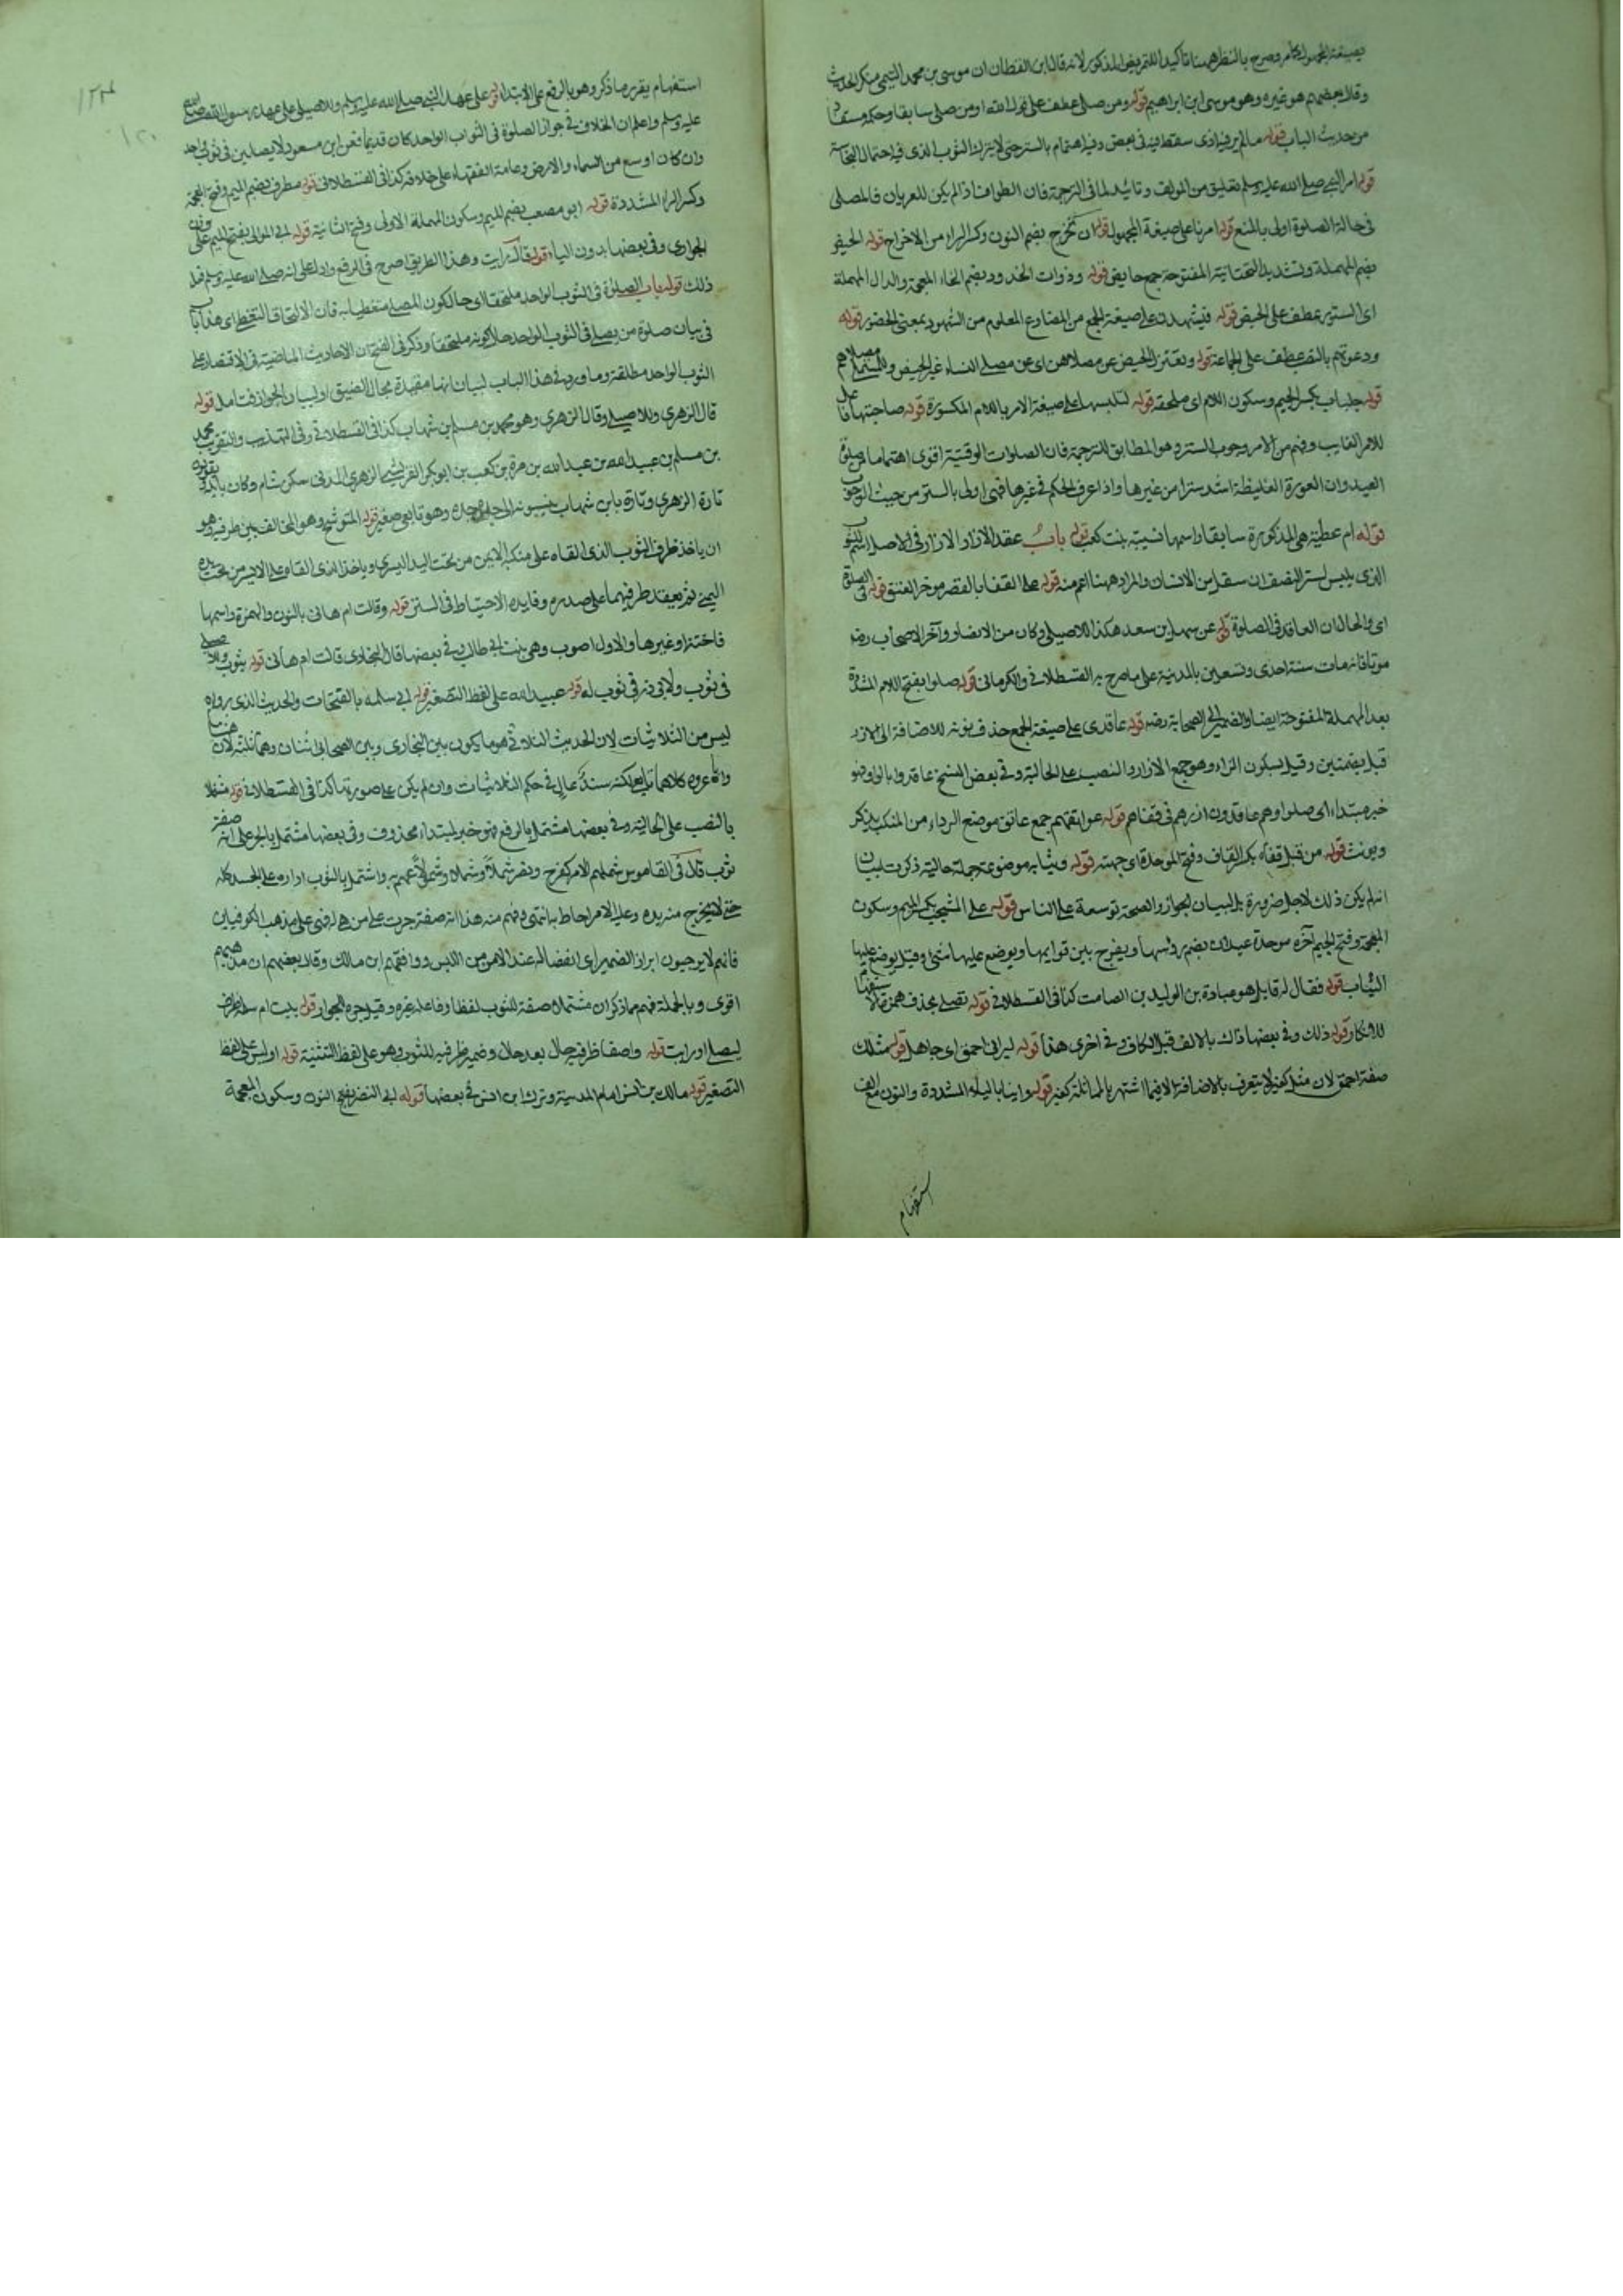 بصيغة المجهول وصرح بالنظر ههنا تاكيدا للتمريض المذكور لانه قال ابن القطان ان موسى بن محمد التيمي منكر الحديث
وقال بعضهم هو غيره وهو موسى ابن ابراهيم قوله ومن صلى عطف على قول الله او من صلى سابقا وحكمه مستفاد
من حديث الباب قوله ما لم ير فيه اذى سقط فيه في بعض وفيه اهتمام بالستر حتى لا يترك الثوب الذي فيه احتمال النجاسة
قوله امر النبي صلى الله عليه وسلم تعليق من المولف وتائيد لما في الترجمة فان الطواف اذ لم يكن للعريان فالمصلى
في حالة الصلوة اولى بالمنع قوله امرنا على صيغة المجهول قوله ان نخرج بضم النون وكسر الراء من الاخراج قوله الحيض
بضم المهملة وتشديد التحتانية المفتوحة جمع حايض قوله وذوات الخدور بضم الخاء المعجمة والدال المهملة
اى الستور عطف على الحيض قوله فيشهدن على صيغة الجمع من المضارع المعلوم من الشهود بمعنى الحضور قوله
ودعوتهم بالنصب عطف على الجماعة قوله وتعتزل الحيض عن مصلاهن اى عن مصلى النساء غير الحيض وللمستملي مصلاهم
قوله جلباب بكسر الجيم وسكون اللام اى ملحفة قوله لتلبسها على صيغة الامر باللام المكسورة قوله صاحبتها فاعل
للامر الغايب وفهم من الامر وجوب الستر وهو المطابق للترجمة فان الصلوات الوقتية اقوى اهتماما من صلوة
العيد وان العورة الغليظة اشد سترا من غيرها واذا عرف الحكم في غيرها فهى اولى بالستر من حيث الوجوب
قوله ام عطية هى المذكورة سابقا واسمها نسيبة بنت كعب قوله باب عقد الازار الازار في الاصل اسم للثوب
الذى يلبس لستر النصف الاسفل من الانسان والمراد ههنا اعم منه قوله على القفا بالقصر موخر العنق قوله في الصلوة
اى والحال ان العاقد في الصلوة قوله عن سهل بن سعد هكذا للاصيلي وكان من الانصار وآخر الاصحاب رضه
موتا فانه مات سنة احدى وتسعين بالمدينة على ما صرح به القسطلاني والكرماني قوله صلوا بفتح اللام المشددة
بعد المهملة المفتوحة ايضا والضمير الى الصحابة رضه قوله عاقدي على صيغة الجمع حذف نونه للاضافة الى الازر
قيل بضمتين وقيل بسكون الزاء وهو جمع الازار والنصب على الحالية وفي بعض النسخ عاقدوا بالواو وهو
خبر مبتداء اى صلوا وهم عاقدون ازرهم في قفاهم قوله عواتقهم جمع عاتق موضع الرداء من المنكب يذكر
ويونث قوله من قبل قفاه بكسر القاف وفتح الموحدة اى جهته قوله وثيابه موضوعة جملة حالية ذكرت لبيان
انه لم يكن ذلك لاجل ضرورة بل لبيان الجواز والصحة توسعة على الناس قوله على المشجب بكسر الميم وسكون
المعجمة وفتح الجيم آخره موحدة عيدان يضم رؤسها ويفرج بين قوايمها ويوضع عليها شئ وقيل يوضع عليها
الثياب قوله فقال له قايل هو عبادة بن الوليد بن الصامت كذا في القسطلاني قوله تصلى بحذف همزة الاستفهام
للانكار قوله ذلك وفي بعضها ذاك بالالف قبل الكاف وفي اخرى هذا قوله ليراني احمق اى جاهل قوله مثلك
صفة احمق لان مثل كغير لا يتعرف بالاضافة الا فيما اشتهر بالمماثلة كغير قوله واينا بالياء المشددة والنون مع الف
استفهام
استفهام يقرر ما ذكر وهو بالرفع على الابتداء قوله على عهد النبي صلى الله عليه وسلم وللاصيلي على عهد رسول الله صلى الله
عليه وسلم واعلم ان الخلاف في جواز الصلوة في الثواب الواحد كان قديما فعن ابن مسعود لا يصلين في ثوب واحد
وان كان اوسع من السماء والارض وعامة الفقهاء على خلافه كذا في القسطلاني قوله مطرف بضم الميم وفتح المهملة
وكسر الراء المشددة قوله ابو مصعب بضم الميم وسكون المهملة الاولى وفتح الثانية قوله ابي الموالى بفتح الميم على وزن
الجوارى وفي بعضها بدون الياء قوله قال رايت وهذا الطريق اصرح في الرفع وادل على انه صلى الله عليه وسلم فعل
ذلك قوله باب الصلوة في الثوب الواحد ملتحفا اى حال كون المصلى متغطيا به فان الالتحاف التغطى اى هذا باب
في بيان صلوة من يصلى في الثوب الواحد حال كونه ملتحفا وذكر في الفتح ان الاحاديث الماضية في الاقتصار على
الثوب الواحد مطلقة وما ورد في هذا الباب لبيان انها مقيدة بحال الضيق او لبيان الجواز فتامل قوله
قال الزهري وللاصيلي وقال الزهري وهو محمد بن مسلم بن شهاب كذا في القسطلاني وفي التهذيب والتقريب محمد
بن مسلم بن عبيد الله بن عبد الله بن مرة بن كعب بن ابو بكر القرشي الزهري المدني سكن شام وكان بايلة يقولون
تارة الزهري وتارة بابن شهاب ينسبونه الى جد جده وهو تابعي صغير قوله المتوشح وهو المخالف بين طرفيه هو
ان ياخذ طرف الثوب الذى القاه على منكبه الايمن من تحت اليد اليسرى وياخذ الذى القاه على الايسر من تحت يده
اليمنى ثم يعقد طرفيهما على صدره وفايده الاحتياط في الستر قوله وقالت ام هانى بالنون والهمزة واسمها
فاختة او غيرها والاول اصوب وهى بنت ابي طالب وفي بعضها قال البخارى قالت ام هانى قوله بثوب وللاصيلي
في ثوب ولابي ذر في ثوب له قوله عبيد الله على لفظ التصغير قوله ابي سلمه بالفتحات والحديث الذى رواه
ليس من الثلاثيات لان الحديث الثلاثي هو ما يكون بين البخارى وبين الصحابي اثنان وههنا ثلثة لان هشاما
وابا عروه كلاهما تابعي لكنه سند عالي في حكم الثلاثيات وان لم يكن على صورتها كذا في القسطلاني قوله مشتملا
بالنصب على الحالية وفي بعضها مشتمل بالرفع فهو خبر لمبتداء محذوف وفي بعضها مشتمل بالجر على انه صفة
ثوب قال في القاموس شملهم الامر كفرح ونصر شملا وشملا وشمولا عمهم به واشتمل بالثوب اداره على الجسد كله
حتى لا يخرج منه يده وعليه الامر احاط به انتهى وفهم منه هذا انه صفة جرت على من هى له فهى على مذهب الكوفيين
فانهم لا يوجبون ابراز الضمير اى انفصاله عند الامن من اللبس ووافقهم ابن مالك وقال بعضهم ان مذهبهم
اقوى وبالجملة فهم مما ذكر ان مشتملا صفة للثوب لفظا وفاعله غيره وقيل جره للجوار قوله بيت ام سلمة ظرف
ليصلى او رايت قوله واضعا طرفيه حال بعد حال وضمير طرفيه للثوب وهو على لفظ التثنية قوله اويس على لفظ
التصغير قوله مالك بن انس امام المدينة وترك ابن انس في بعضها قوله ابي النضر بفتح النون وسكون المعجمة